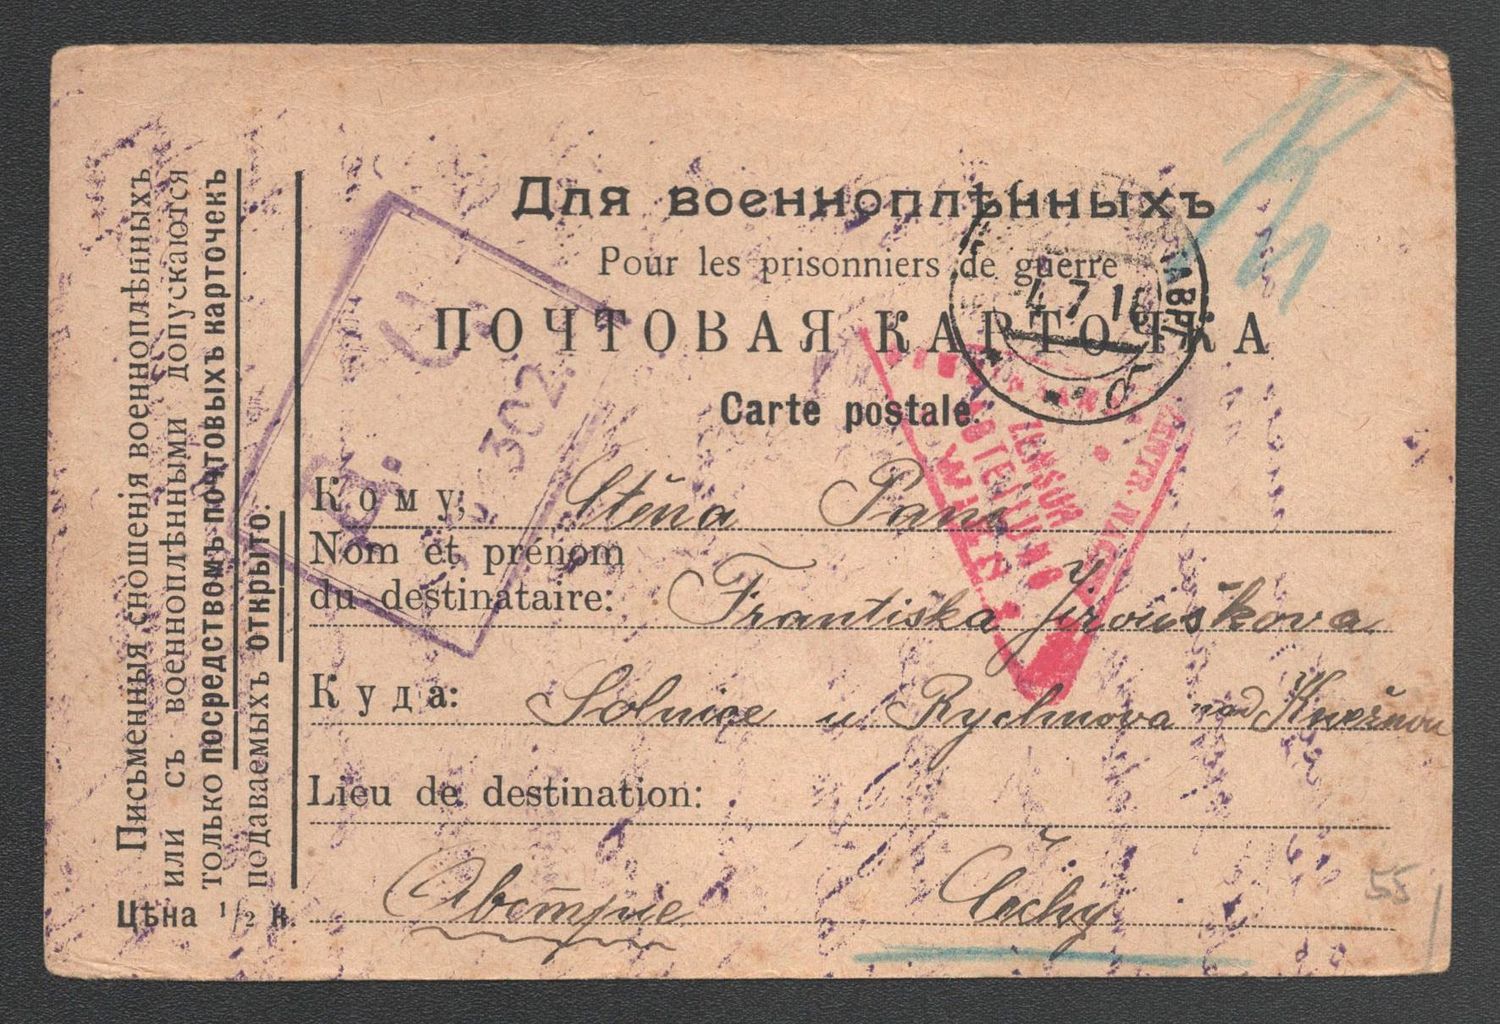 Для военноплѣнныхъ
Pour les prisonniers de guerre
ПОЧТОВАЯ КАРТОЧКА
Carte postale.
Кому:
Nom et prénom
du destinataire:
Frantiska Jirouškova
Куда:
Solnice u Rychnova nad Kněžnou
Lieu de destination:
Čechy
Письменныя сношенія военноплѣнныхъ
или съ военноплѣнными допускаются
только посредствомъ почтовыхъ карточекъ
подаваемыхъ открыто.
Цѣна ½ к.
4 7 16
ТАВР
б
302
ZENSUR
ABTEILUNG
WIEN
55